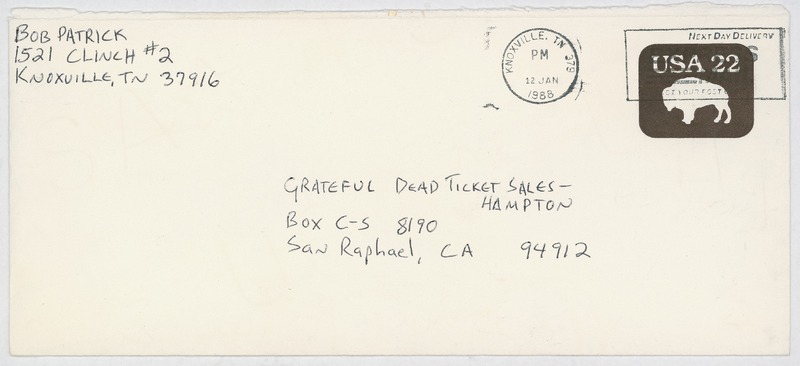 BOB PATRICK
1521 CLINCH #2
KNOXVILLE, TN 37916
KNOXVILLE, TN 379
PM
12 JAN
1988
NEXT DAY DELIVERY
USA 22
GRATEFUL DEAD TICKET SALES-
HAMPTON
BOX C-S 8190
San Raphael, CA 94912